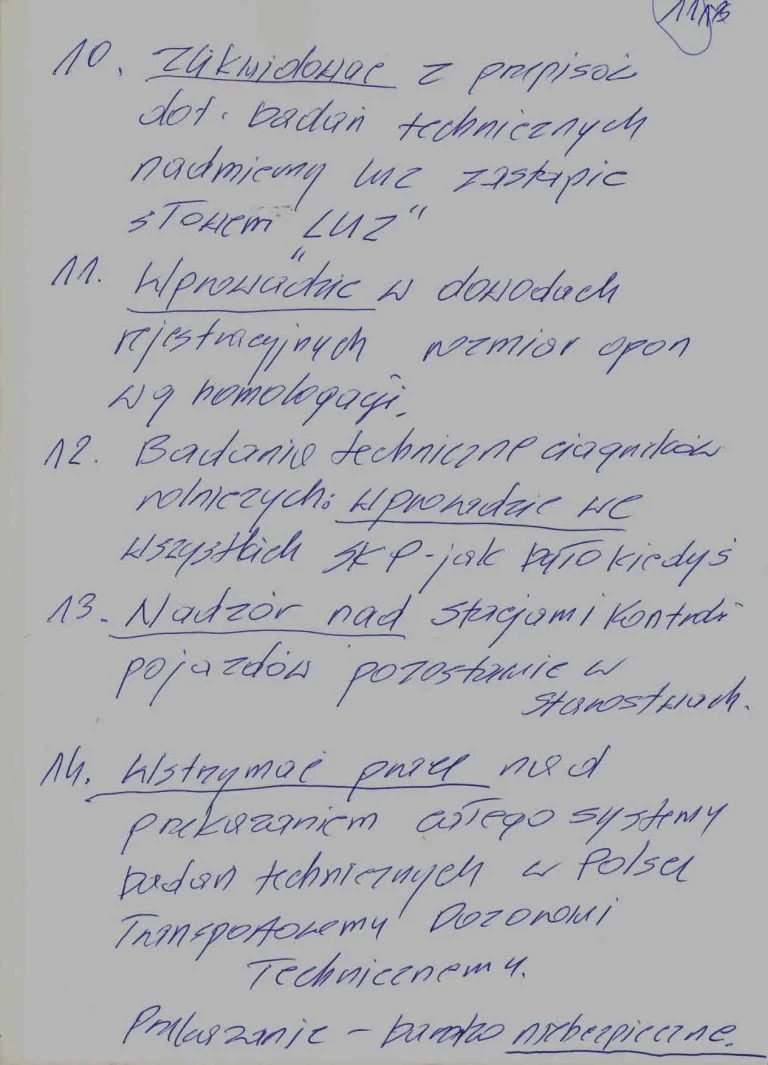 10. Zlikwidować z przepisów
dot. badań technicznych
nadmierny luz zastąpić
słowem „LUZ"
11. Wprowadzić w dowodach
rejestracyjnych rozmiar opon
wg homologacji.
12. Badanie techniczne ciągników
rolniczych: wprowadzić we
wszystkich SKP - jak było kiedyś
13. Nadzór nad stacjami kontroli
pojazdów pozostawić w
starostwach.
14. Wstrzymać prace nad
przekazaniem całego systemy
badań technicznych w Polsce
Transportowemu Dozorowi
Technicznemu.
Przekazanie - bardzo niebezpieczne.